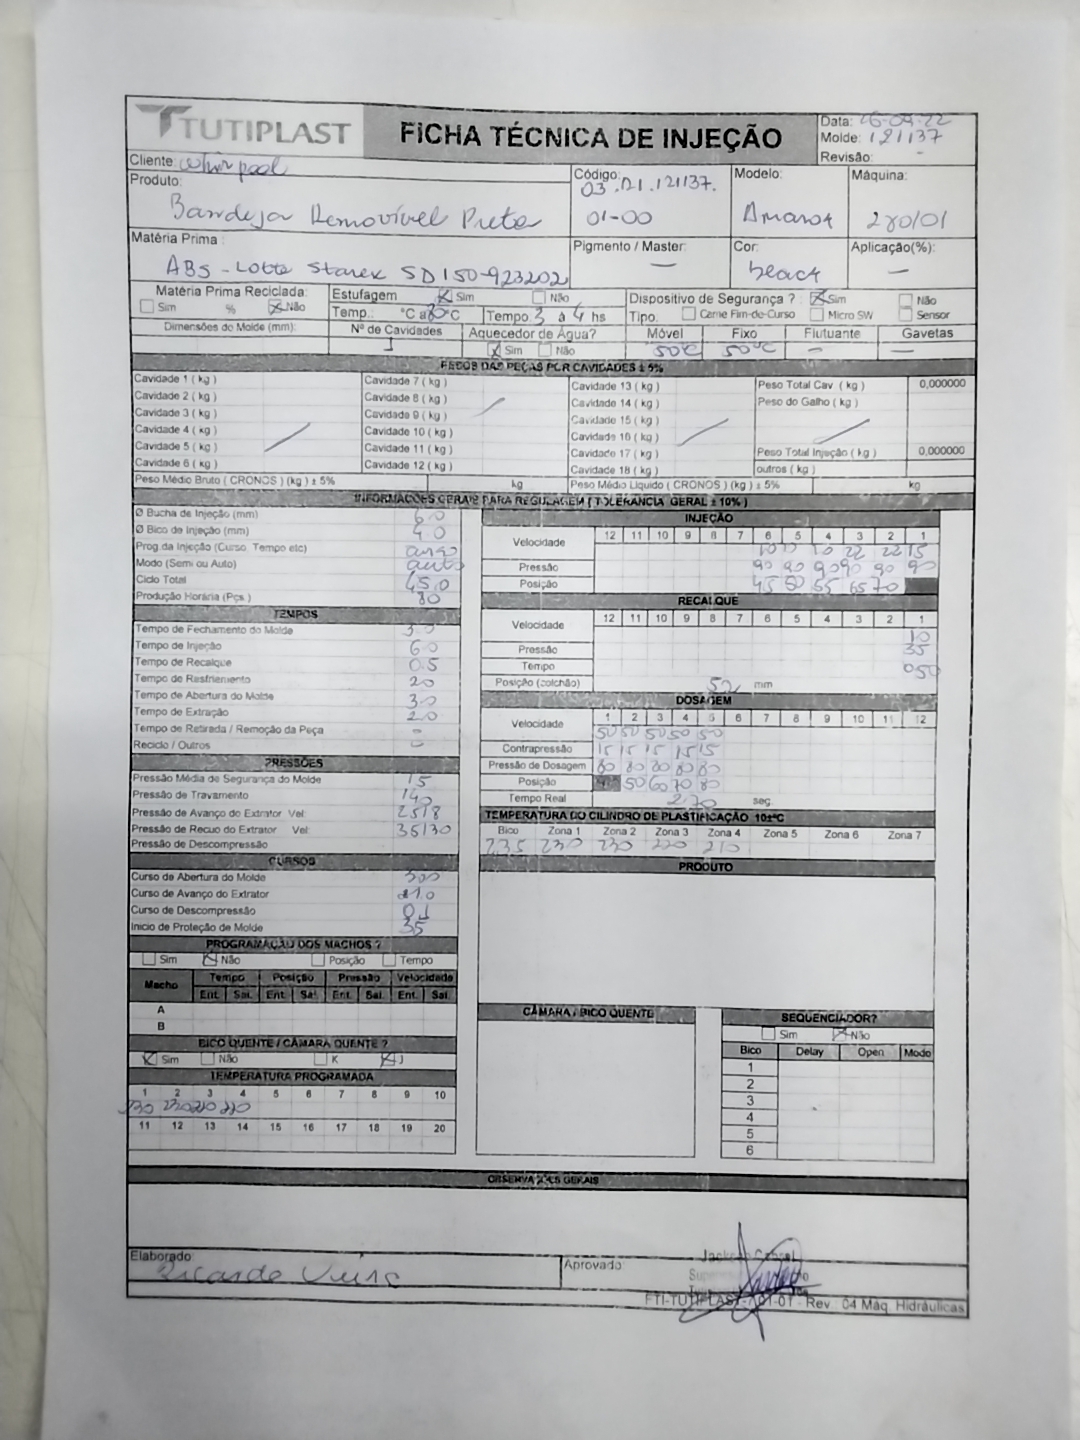 TUTIPLAST
FICHA TÉCNICA DE INJEÇÃO
Data: 26-09-22
Molde: 121137
Revisão: -
Cliente: Whirpool
Produto:
Bandeja Removível Preta
Código:
03.01.121137.
01-00
Modelo:
Máquina:
280/01
Matéria Prima:
ABS - Lotte Starex SD150-923202
Pigmento / Master:
—
Cor:
Aplicação(%):
—
Matéria Prima Reciclada:
Sim % X Não
Estufagem X Sim Não
Temp.: °C a 80°C Tempo 3 á 4 hs
Dispositivo de Segurança ? X Sim Não
Tipo. Came Fim-de-Curso Micro SW Sensor
Dimensões do Molde (mm):
Nº de Cavidades
1
Aquecedor de Água?
X Sim Não
Móvel Fixo Flutuante Gavetas
50°C 50°C — —
PESOS DAS PEÇAS POR CAVIDADES ± 5%
Cavidade 1 ( kg ) Cavidade 7 ( kg ) Cavidade 13 ( kg ) Peso Total Cav. ( kg ) 0,000000
Cavidade 2 ( kg ) Cavidade 8 ( kg ) Cavidade 14 ( kg ) Peso do Galho ( kg )
Cavidade 3 ( kg ) Cavidade 9 ( kg ) Cavidade 15 ( kg )
Cavidade 4 ( kg ) Cavidade 10 ( kg ) Cavidade 16 ( kg )
Cavidade 5 ( kg ) Cavidade 11 ( kg ) Cavidade 17 ( kg ) Peso Total Injeção ( kg ) 0,000000
Cavidade 6 ( kg ) Cavidade 12 ( kg ) Cavidade 18 ( kg ) outros ( kg )
Peso Médio Bruto ( CRONOS ) (kg ) ± 5% kg Peso Médio Liquido ( CRONOS ) (kg ) ± 5% kg
INFORMAÇÕES GERAIS PARA REGULAGEM ( TOLERANCIA GERAL ± 10% )
Ø Bucha de Injeção (mm) 6.0
Ø Bico de Injeção (mm) 4.0
Prog da Injeção (Curso, Tempo etc) curso
Modo (Semi ou Auto) auto
Ciclo Total 45.0
Produção Horária (Pçs.) 80
TEMPOS
Tempo de Fechamento do Molde 3.0
Tempo de Injeção 6.0
Tempo de Recalque 0.5
Tempo de Resfriamento 20
Tempo de Abertura do Molde 3.0
Tempo de Extração 2.0
Tempo de Retirada / Remoção da Peça -
Reciclo / Outros -
PRESSÕES
Pressão Média de Segurança do Molde 15
Pressão de Travamento 140
Pressão de Avanço do Extrator Vel: 25/8
Pressão de Recuo do Extrator Vel: 35/30
Pressão de Descompressão
CURSOS
Curso de Abertura do Molde 300
Curso de Avanço do Extrator 21.0
Curso de Descompressão 0.1
Inicio de Proteção de Molde 35
PROGRAMAÇÃO DOS MACHOS ?
Sim X Não Posição Tempo
Macho Tempo Posição Pressão Velocidade
Ent. Sai. Ent. Sai. Ent. Sai. Ent. Sai.
A
B
BICO QUENTE / CÂMARA QUENTE ?
X Sim Não K X J
TEMPERATURA PROGRAMADA
1 2 3 4 5 6 7 8 9 10
230 230 210 210
11 12 13 14 15 16 17 18 19 20
INJEÇÃO
Velocidade 12 11 10 9 8 7 6 5 4 3 2 1
10 10 10 22 22 15
Pressão 90 90 90 90 90 90
Posição 45 50 55 65 70
RECALQUE
Velocidade 12 11 10 9 8 7 6 5 4 3 2 1
10
Pressão 35
Tempo 0.50
Posição (colchão) 52 mm
DOSAGEM
Velocidade 1 2 3 4 5 6 7 8 9 10 11 12
50 50 50 50 50
Contrapressão 15 15 15 15 15
Pressão de Dosagem 80 80 80 80 80
Posição 50 60 70 80
Tempo Real 2.70 seg.
TEMPERATURA DO CILINDRO DE PLASTIFICAÇÃO 10±ºC
Bico Zona 1 Zona 2 Zona 3 Zona 4 Zona 5 Zona 6 Zona 7
235 230 230 220 210
PRODUTO
CÂMARA / BICO QUENTE
SEQUENCIADOR?
Sim X Não
Bico Delay Open Modo
1
2
3
4
5
6
OBSERVAÇÕES GERAIS
Elaborado:
Ricardo
Aprovado:
FTI-TUTIPLAST-001-01 - Rev.: 04 Maq. Hidráulicas